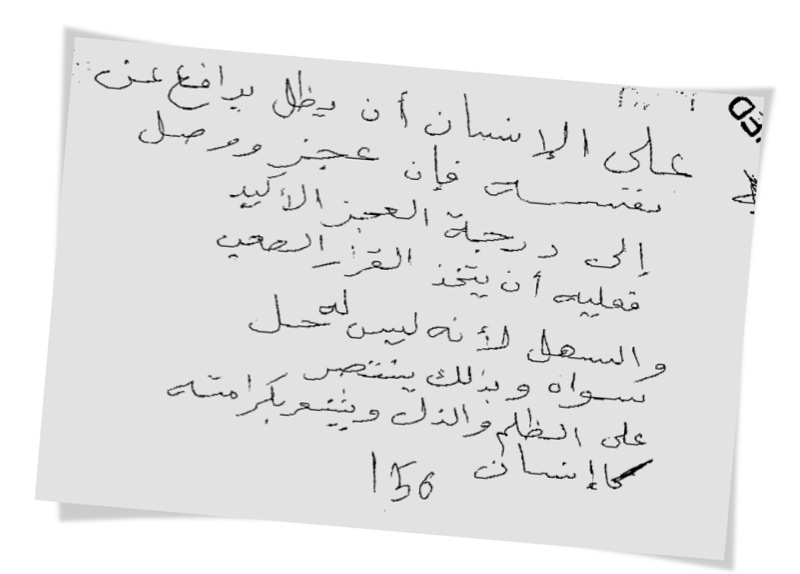 على الإنسان أن يظل يدافع عن
نفسه فإن عجز ووصل
إلى درجة العجز الأكيد
فعليه أن يتخذ القرار الصعب
والسهل لأنه ليس له حل
سواه وبذلك ينتصر
على الظلم والذل ويشعر بكرامته
كإنسان 156